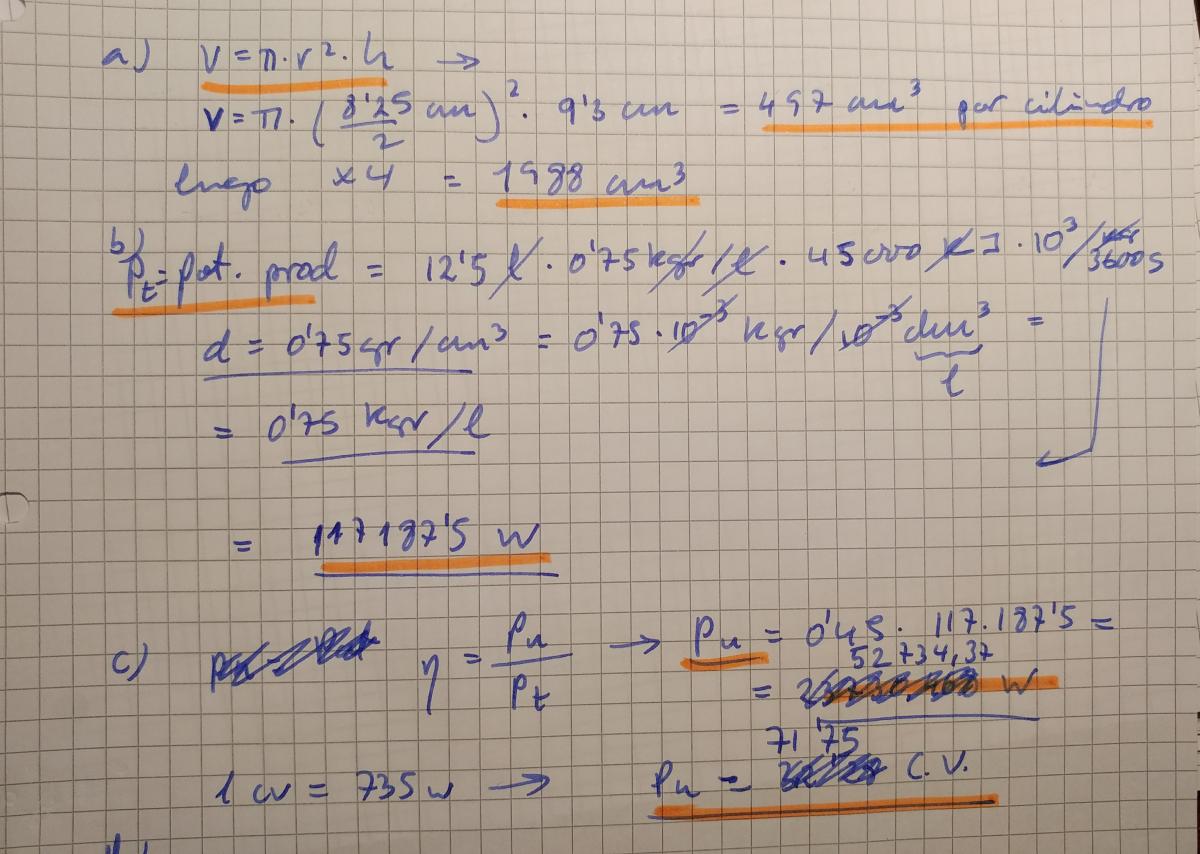 a) V = π · r² · h →
V = π · (8'25 cm / 2)² · 9'3 cm = 497 cm³ por cilindro
luego x4 = 1988 cm³
b) Pt = pot. prod = 12'5 l · 0'75 kgr/l · 45000 kJ · 10³ / 3600s
d = 0'75 gr/cm³ = 0'75 · 10⁻³ kgr / 10⁻³ dm³ =
l
= 0'75 kgr/l
= 117187'5 W
c) η = Pu / Pt → Pu = 0'45 · 117.187'5 =
52734,37
= W
71'75
1 cv = 735 w → Pu = C.V.